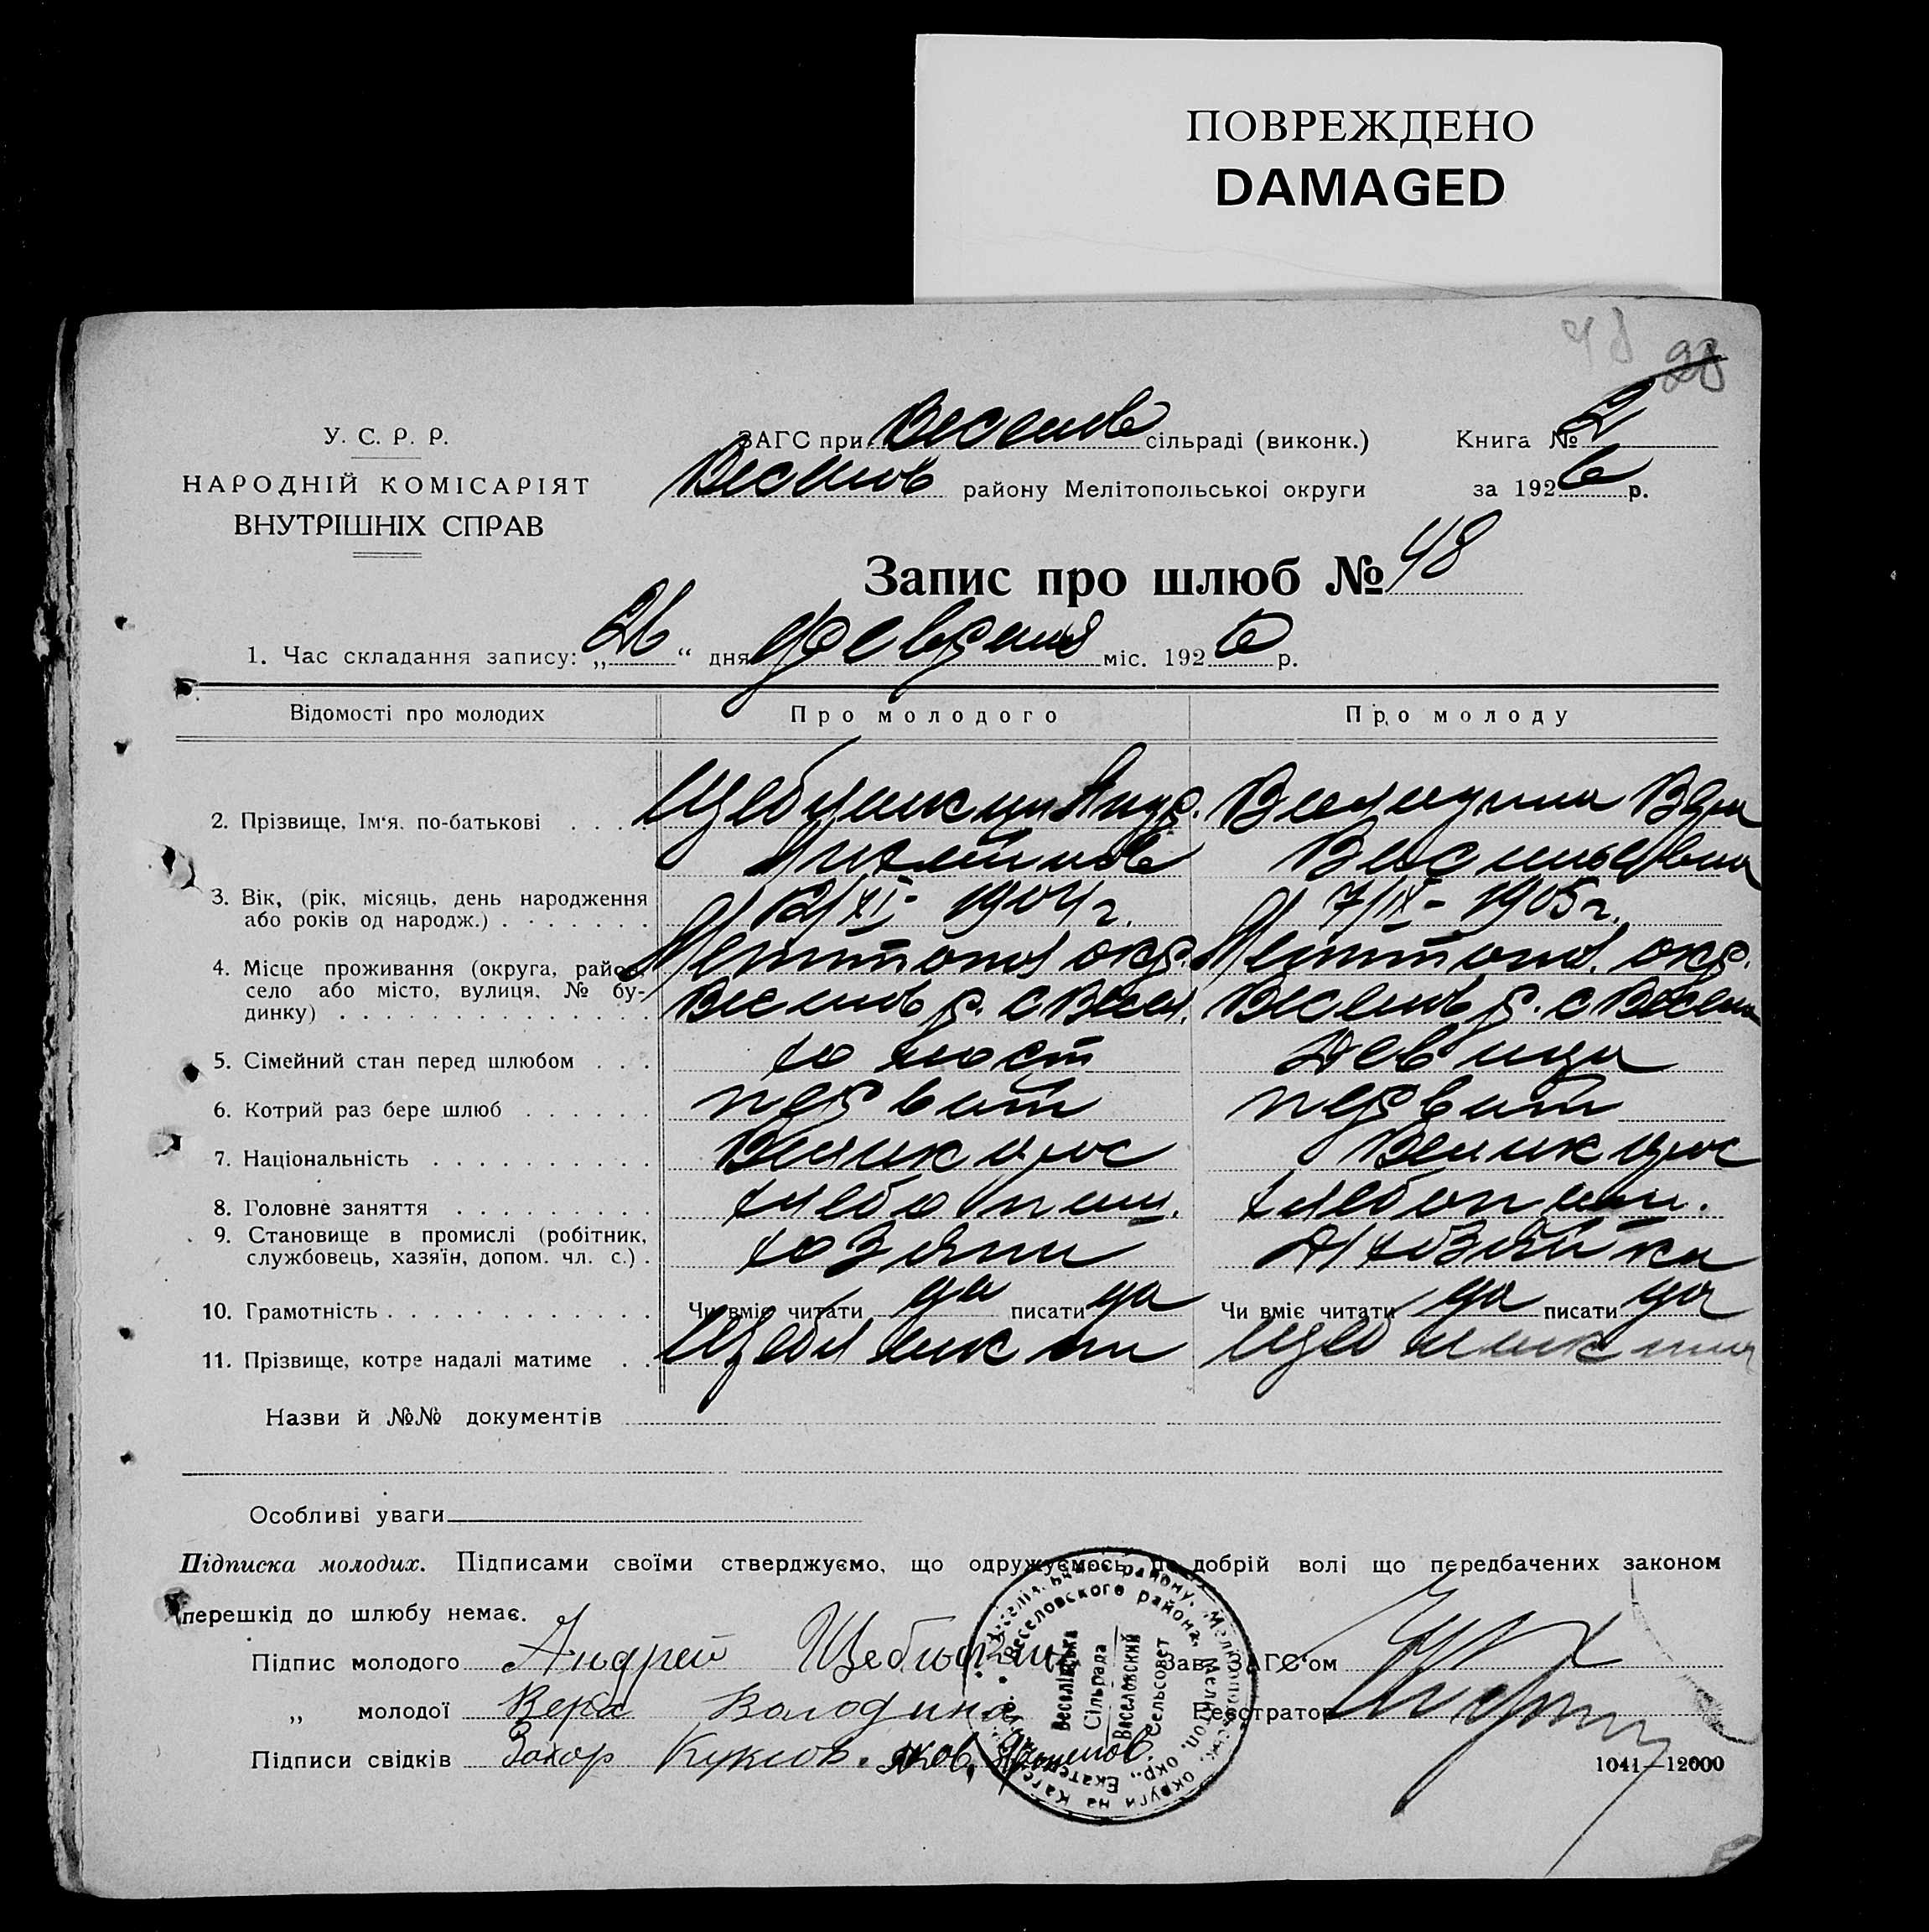 ПОВРЕЖДЕНО
DAMAGED
48 28
У. С. Р. Р.
ЗАГС при Веселов сільраді (виконк.) Книга № 2
НАРОДНІЙ КОМІСАРІЯТ
Веселов району Мелітопольської округи за 1926 р.
ВНУТРІШНІХ СПРАВ
Запис про шлюб № 48
1. Час складання запису: „26“ дня февраля міс. 1926 р.
Відомості про молодих Про молодого Про молоду
2. Прізвище, Ім‘я, по-батькові . . . Андр. Вера
Васильевна
3. Вік, (рік, місяць, день народження
або років од народж.) . . . . . . . 12/XI - 1904 г. 7/IX - 1905 г.
4. Місце проживання (округа, район, Мелитопол окр. Мелитопол. окр.
село або місто, вулиця, № бу-
динку) . . . . . . . . . . . . . . Веселов р. с Весел. Веселов р. с Весел
5. Сімейний стан перед шлюбом . . . холост девица
6. Котрий раз бере шлюб . . . . . . первий первий
7. Національність . . . . . . . . . . Великорос Великорос
8. Головне заняття . . . . . . . . . хлебопаш. хлебопаш.
9. Становище в промислі (робітник,
службовець, хазяїн, допом. чл. с.) . хозяин д/хозяйка
10. Грамотність . . . . . . . . . . . . Чи вміє читати да писати да Чи вміє читати да писати да
11. Прізвище, котре надалі матиме . .
Назви й №№ документів
Особливі уваги
Підписка молодих. Підписами своїми стверджуємо, що одружуємось по добрій волі що передбачених законом
перешкід до шлюбу немає.
Підпис молодого Андрей Зав. ЗАГС‘ом
„ молодої Вера Володина Реєстратор
Підписи свідків Захор
Веселівська
Сільрада
Веселовский
Сельсовет
Веселовского района, Мелитоп. окр., Екатер
1041—12000